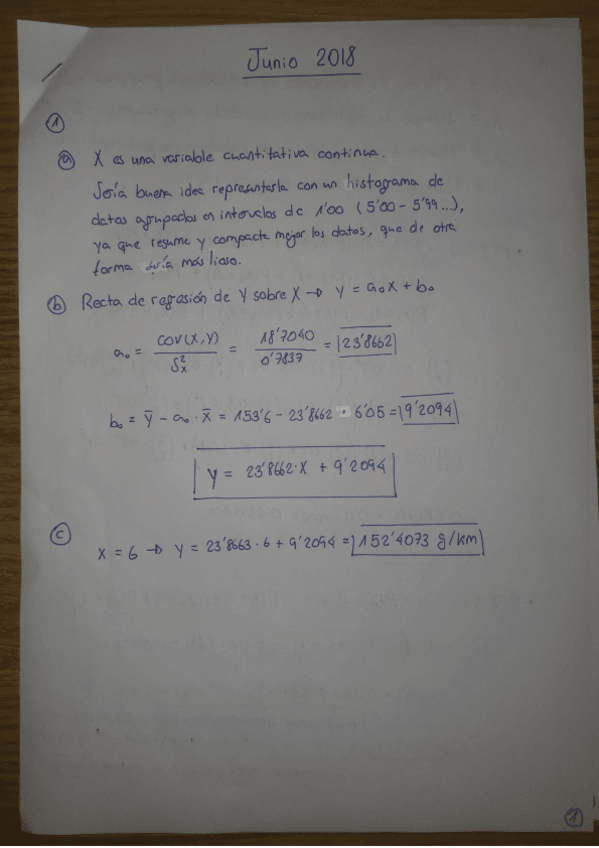 Junio 2018
1
a X es una variable cuantitativa continua.
Sería buena idea representarla con un histograma de
datos agrupados en intervalos de 1'00 (5'00 - 5'99...),
ya que resume y compacta mejor los datos, que de otra
forma sería más lioso.
b Recta de regresión de Y sobre X → Y = a₀X + b₀
a₀ = COV(X,Y) / S²ₓ = 18'7040 / 0'7837 = 23'8662
b₀ = Ȳ - a₀ · X̄ = 153'6 - 23'8662 · 6'05 = 9'2094
Y = 23'8662·X + 9'2094
c X = 6 → Y = 23'8663 · 6 + 9'2094 = 152'4073 g/km
1